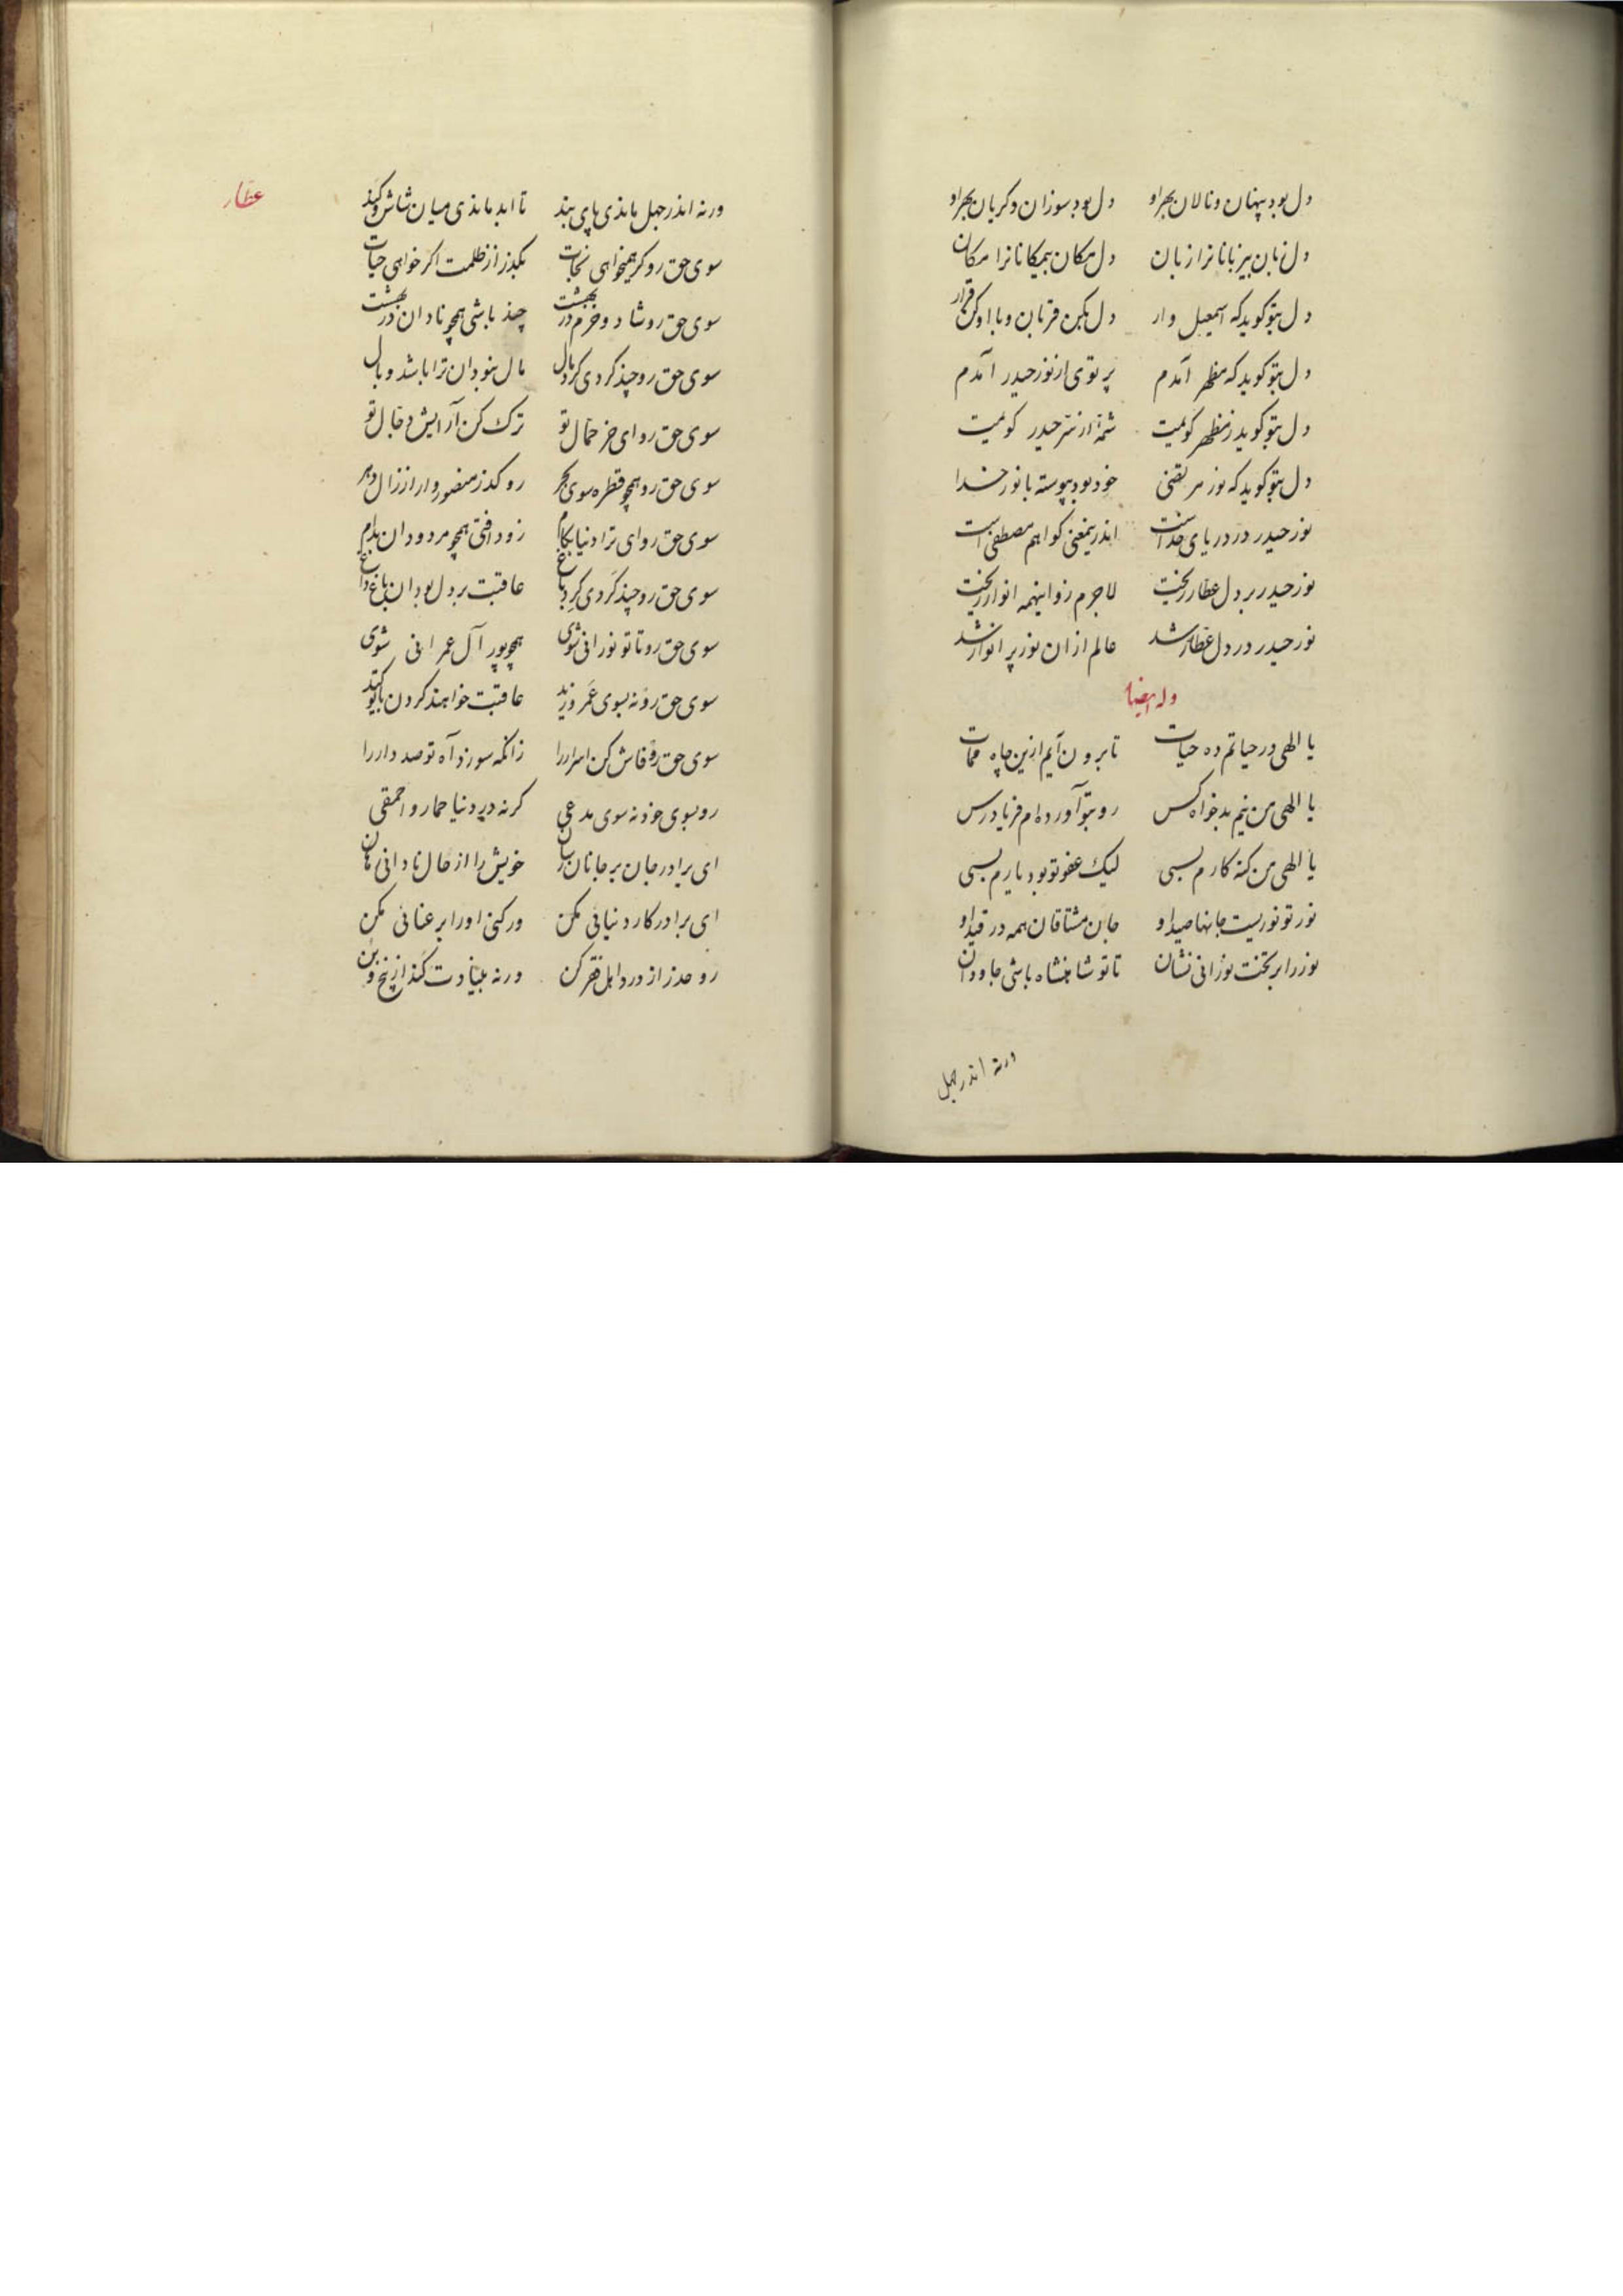 دل بود پنهان و نالان بهر او دل بود سوزان و کریان بهر او
دل زبان بیزبانانرا زبان دل مکان بیمکانانرا مکان
دل بتو کوید که اسمعیل وار دل بکن قربان و با او کن قرار
دل بتو کوید که مظهر آمدم پرتوی از نور حیدر آمدم
دل بتو کوید ز مظهر کویمت شمهٔ از سر حیدر کویمت
دل بتو کوید که نور مرتضی خود بود پیوسته با نور خدا
نور حیدر در دریای خداست اندر یمعنی کواهم مصطفی است
نور حیدر بر دل عطار ریخت لاجرم زو اینهمه انوار ریخت
نور حیدر در دل عطار شد عالم از ان نور پر انوار شد
وله ایضا
یا الهی در حیاتم ده حیات تا برون آیم ازین چاه ممات
یا الهی من نیم بدخواه کس رو بتو آورده ام فریادرس
یا الهی من کنه کارم بسی لیک عفو تو بود یارم بسی
نور تو نوریست جانها صید او جان مشتاقان همه در قید او
نور را بر تخت نورانی نشان تا تو شاهنشاه باشی جاودان
ورنه اندر جهل
عطار
ورنه اندر جهل ماندی پای بند تا ابد ماندی میان شاش و کند
سوی حق رو کر همیخواهی نجات بکذر از ظلمت اکر خواهی حیات
سوی حق رو شاد و خرم در بهشت چند باشی همچو نادان در بهشت
سوی حق رو چند کردی کرد مال مال بنود ان ترا باشد وبال
سوی حق رو ای خر حمال تو ترک کن آرایش دجال تو
سوی حق رو همچو قطره سوی بحر رو کذر منصور وار از زال دهر
سوی حق رو ای ترا دنیا بکام زود افتی همچو مردودان بدام
سوی حق رو چند کردی کرد باغ عاقبت بر دل بود ان باغ داغ
سوی حق رو تا تو نورانی شوی همچو پور آل عمرانی شوی
سوی حق رو نه بسوی عمر و زید عاقبت خواهند کردن با تو کید
سوی حق رو فاش کن اسرار را زانکه سوزد آه تو صد دار را
رو بسوی خود نه سوی مدعی کرنه در دنیا حمار و احمقی
ای برادر جان بر جانان رسان خویش را از حال نادانی هان
ای برادر کار دنیائی مکن ور کنی او را برعنائی مکن
رو حذر از درد اهل فقر کن ورنه بنیادت کند از بیخ و بن